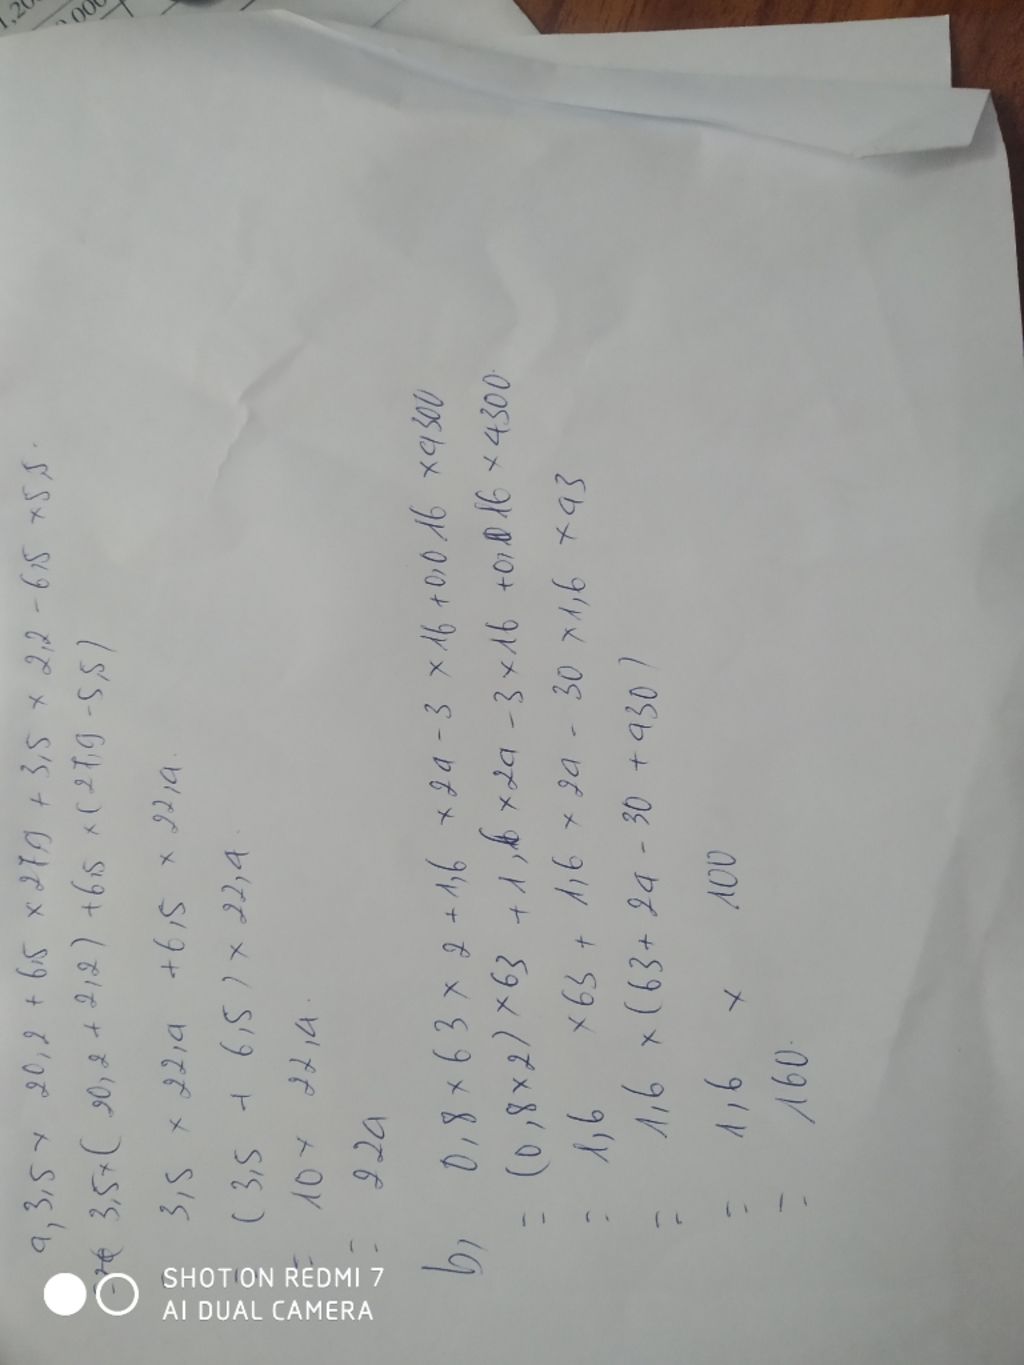 a, 3,5 × 20,2 + 6,5 × 27,9 + 3,5 × 2,2 - 6,5 × 5,5.
3,5 × ( 20,2 + 2,2) + 6,5 × (27,9 - 5,5)
3,5 × 22,4 + 6,5 × 22,4.
= (3,5 + 6,5) × 22,4.
= 10 × 22,4.
= 224
b, 0,8 × 63 × 2 + 1,6 × 24 - 3 × 16 + 0,016 × 4300
= (0,8 × 2) × 63 + 1,6 × 24 - 3 × 16 + 0,016 × 4300.
= 1,6 × 63 + 1,6 × 24 - 30 × 1,6 × 43
= 1,6 × (63 + 24 - 30 + 430)
= 1,6 × 100
= 160.
SHOT ON REDMI 7
AI DUAL CAMERA